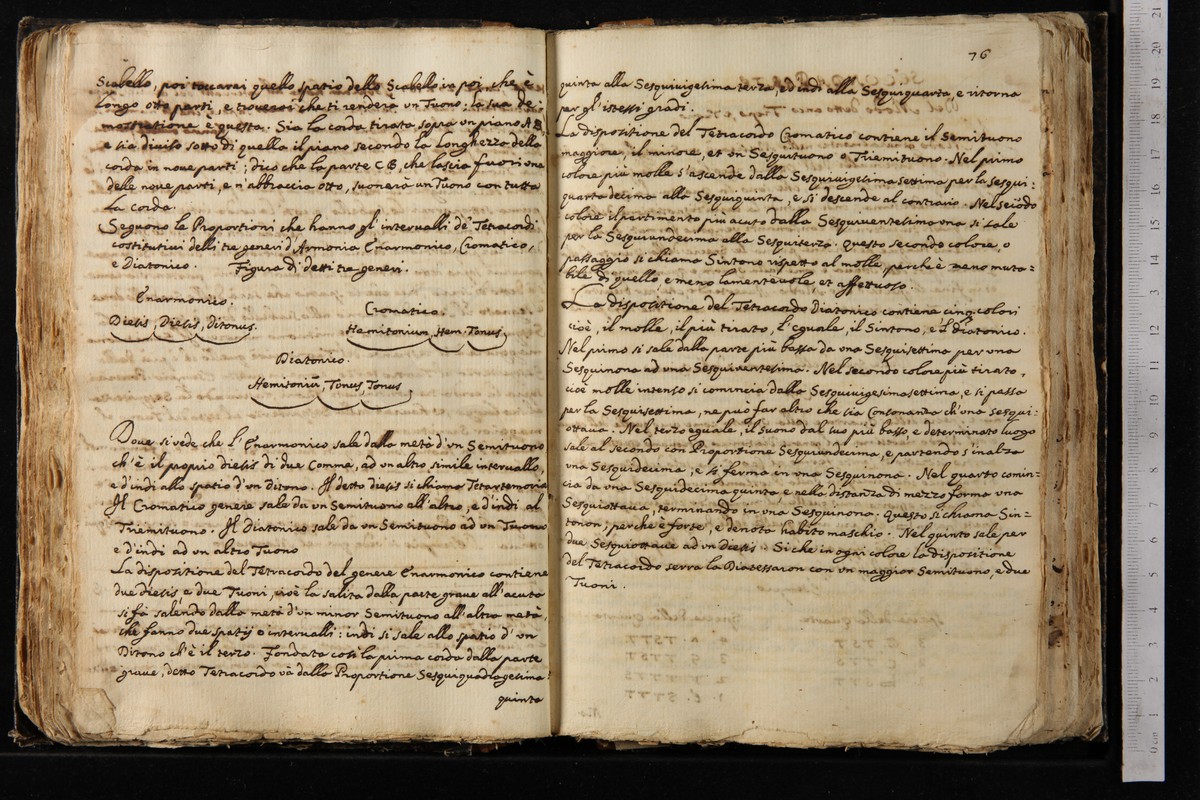 Scabello, poi toccarai quello spatio dello Scabello in poi, che è
longo otto parti, e troverai che ti renderà un Tuono; la sua de=
mostratione è questa. Sia la corda tirata sopra un piano AB,
e sia diviso sotto di quella il piano secondo la Longhezza della
corda in nove parti; dico che la parte CB, che lascia fuori una
delle nove parti, e n'abbraccia otto, suonerà un Tuono con tutta
la corda.
Seguono le Proportioni che hanno gl'intervalli de' Tetracordi
costitutivi delli tre generi d'Armonia Enarmonico, Cromatico,
e Diatonico. Figura di detti tre generi.
Enarmonico.
Diesis, Diesis, Ditonus.
Cromatico.
Hemitonium, Hem. Tonus,
Diatonico.
Hemitoniũ, Tonus Tonus
Dove si vede che l'Enarmonico sale dalla metà d'un Semituono
ch'è il proprio diesis di due Comma, ad un altro simile intervallo,
e d'indi allo spatio d'un ditono. Il detto diesis si chiama Tetartemoria
Il Cromatico genere sale da un Semituono all'altro, e d'indi al
Triemituono. Il Diatonico sale da un Semituono ad un Tuono
e d'indi ad un altro Tuono
La dispositione del Tetracordo del genere Enarmonico contiene
due diesis e due Tuoni, cioè la salita dalla parte grave all'acuta
si fà salendo dalla metà d'un minor Semituono all'altra metà,
che fanno due spatij o intervalli: indi si sale allo spatio d'un
Ditono ch'è il terzo. Fondata così la prima corda dalla parte
grave, detto Tetracordo và dalla Proportione Sesquiquadragesima=
quinta
76
quinta alla Sesquivigesima terza, ed indi alla Sesquiquarta, e ritorna
per gl'istessi gradi.
La dispositione del Tetracordo Cromatico contiene il Semituono
maggiore, il minore, et un Sesquituono o Triemituono. Nel primo
colore più molle s'ascende dalla Sesquivigesimasettima per la sesqui=
quartadecima alla Sesquiquinta, e si descende al contrario. Nel secõdo
colore il pertimento più acuto dalla Sesquiventesimauna si sale
per la Sesquiundecima alla Sesquisterza. questo secondo colore, o
passaggio si chiama Sintono rispetto al molle, perche è meno muta=
bile di quello, e meno lamentevole, et affettuoso.
La dispositione del Tetracordo Diatonico contiene cinq. colori
cioè, il molle, il più tirato, l'equale, il Sintono, e l diatonico.
Nel primo si sale dalla parte più bassa da una Sesquisettima per una
Sesquinona ad una Sesquiventesima. Nel secondo colore più tirato,
cioè molle intenso si comincia dalla Sesquivigesimasettima, e si passa
per la Sesquisettima, ne può far altro che sia Consonanza ch'una sesqui=
ottava. Nel terzo eguale, il suono dal suo più basso, e determinato luogo
sale al secondo con Proportione Sesquiundecima, e partendo s'inalza
una Sesquidecima, e si ferma in una Sesquinona. Nel quarto comin=
cia da una Sesquidecimaquinta, e nella distanza di mezzo forma una
Sesquiottava, terminando in una Sesquinona. questo si chiama Sin=
tonon; perche è forte, e denota habito maschio. Nel quinto sale per
due Sesquiottave ad un diesis. Si che in ogni colore la dispositione
del Tetracordo serra la Diatessaron con un maggior Semituono, e due
Tuoni.